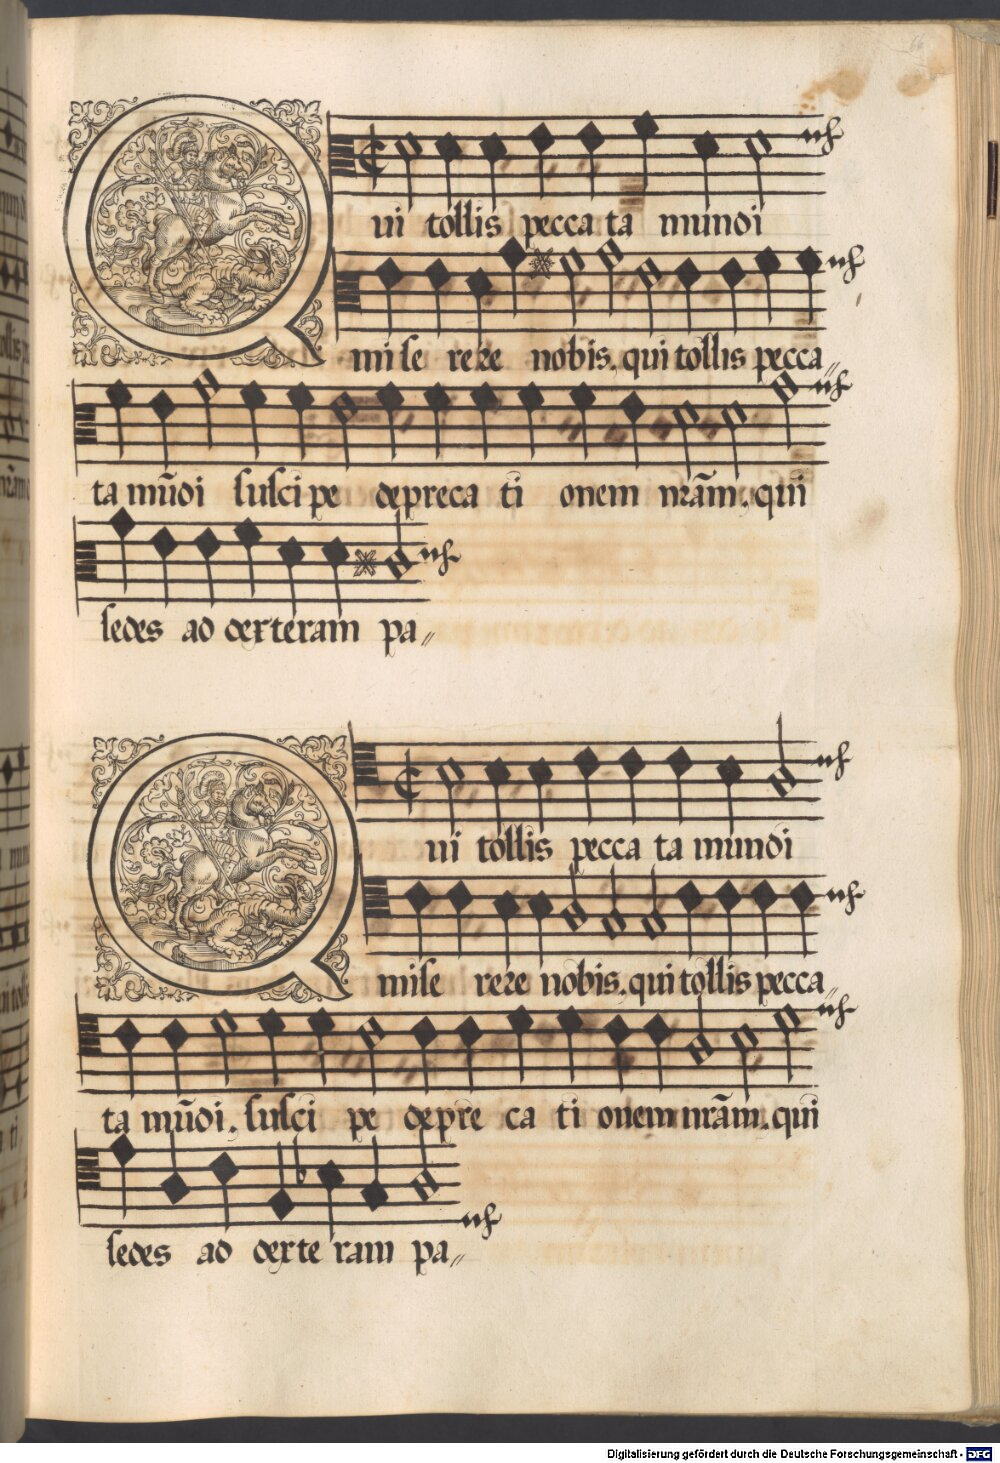 66
Qui tollis pecca ta mundi
mise rere nobis. qui tollis pecca〃
ta mūdi suscipe depreca ti onem nrām. qui
sedes ad dexteram pa〃
Qui tollis pecca ta mundi
mise rere nobis. qui tollis pecca〃
ta mūdi. susci pe depre ca ti onem nrām. qui
sedes ad dexte ram pa〃
Digitalisierung gefördert durch die Deutsche Forschungsgemeinschaft - DFG